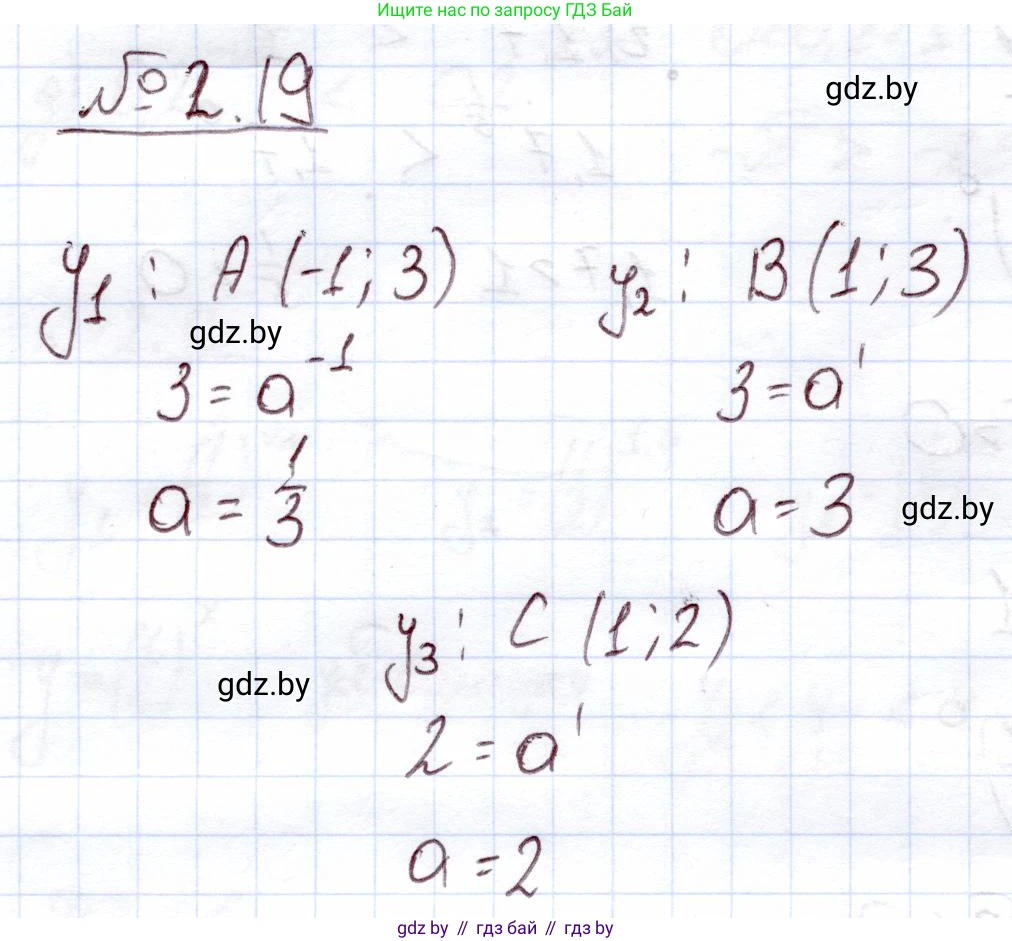 Ищите нас по запросу ГДЗ Бай
№ 2.19
gdz.by
y₁ : A (-1; 3)
y₂ : B (1; 3)
gdz.by
3 = a⁻¹
3 = a¹
a = 1/3
a = 3
gdz.by
y₃ : C (1; 2)
gdz.by
2 = a¹
a = 2
gdz.by // гдз бай // гдз by